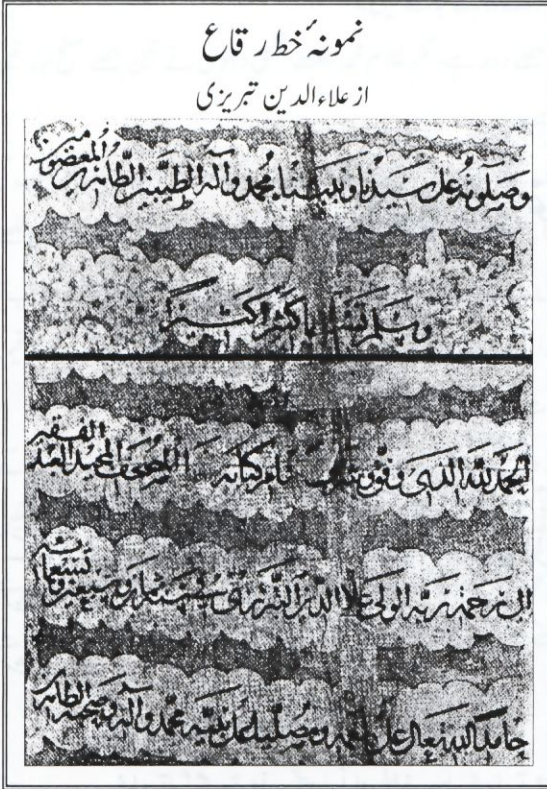 نمونۂ خط رقاع
از علاء الدین تبریزی
وصلوته على سيدنا ونبينا محمد وآله الطيبين الطاهرين المعصومين
وسلم تسليما كثيرا كثيرا
الحمد لله الذي وفق بكتابة المصحف المجيد العبد الفقير
الى رحمة ربه الولي علاء الدين التبريزي سنة وسبعين وتسعمائه
حامدا لله تعالى على نعمه ومصليا على نبيه محمد وآله وصحبه الطاهر